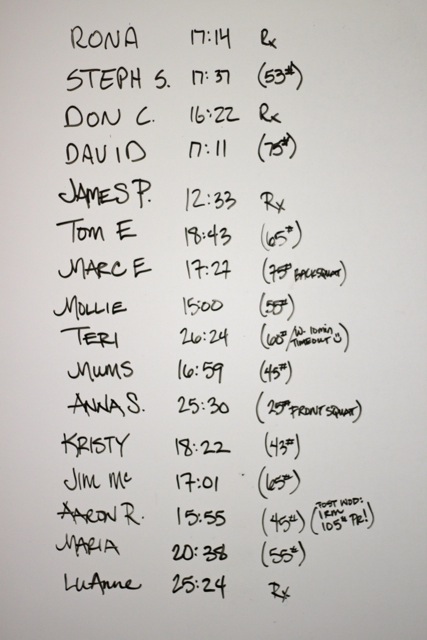 RONA 17:14 Rx
STEPH S. 17:37 (53#)
DON C. 16:22 Rx
DAVID 17:11 (75#)
JAMES P. 12:33 Rx
TOM E 18:43 (65#)
MARC E 17:27 (75# BACKSQUAT)
MOLLIE 15:00 (55#)
TERI 26:24 (60# / W. 10min TIMEOUT ☺)
MUMS 16:59 (45#)
ANNA S. 25:30 (25# FRONT SQUAT)
KRISTY 18:22 (43#)
JIM Mc 17:01 (65#)
AARON R. 15:55 (45#) (POST WOD: 1RM 105# PR!)
MARIA 20:38 (55#)
LuAnne 25:24 Rx